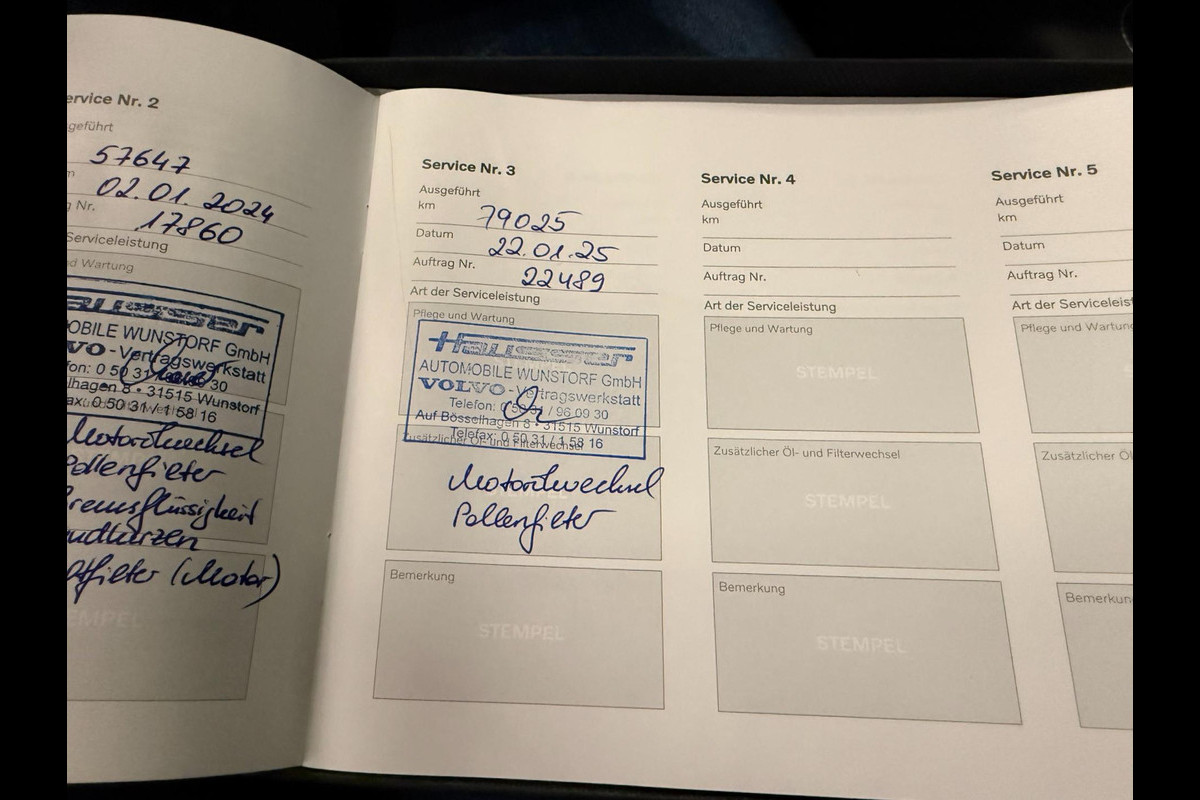 ervice Nr. 2
geführt
57647
m
02.01.2024
g Nr.
17860
Serviceleistung
d Wartung
OBILE WUNSTORF GmbH
VO-Vertragswerkstatt
fon: 0 50 31 / 96 09 30
lhagen 8 · 31515 Wunstorf
ax: 0 50 31 / 1 58 16
Motorölwechsel
Pollenfilter
remsflüssigkeit
ündkerzen
ftfilter (Motor)
EMPEL
Service Nr. 3
Ausgeführt
km 79025
Datum 22.01.25
Auftrag Nr. 22489
Art der Serviceleistung
Pflege und Wartung
AUTOMOBILE WUNSTORF GmbH
VOLVO-Vertragswerkstatt
Telefon: 0 50 31 / 96 09 30
Auf Bösselhagen 8 · 31515 Wunstorf
Telefax: 0 50 31 / 1 58 16
Zusätzlicher Öl- und Filterwechsel
Motorölwechsel
Pollenfilter
Bemerkung
STEMPEL
Service Nr. 4
Ausgeführt
km
Datum
Auftrag Nr.
Art der Serviceleistung
Pflege und Wartung
STEMPEL
Zusätzlicher Öl- und Filterwechsel
STEMPEL
Bemerkung
STEMPEL
Service Nr. 5
Ausgeführt
km
Datum
Auftrag Nr.
Art der Serviceleist
Pflege und Wartung
Zusätzlicher Öl
Bemerkun